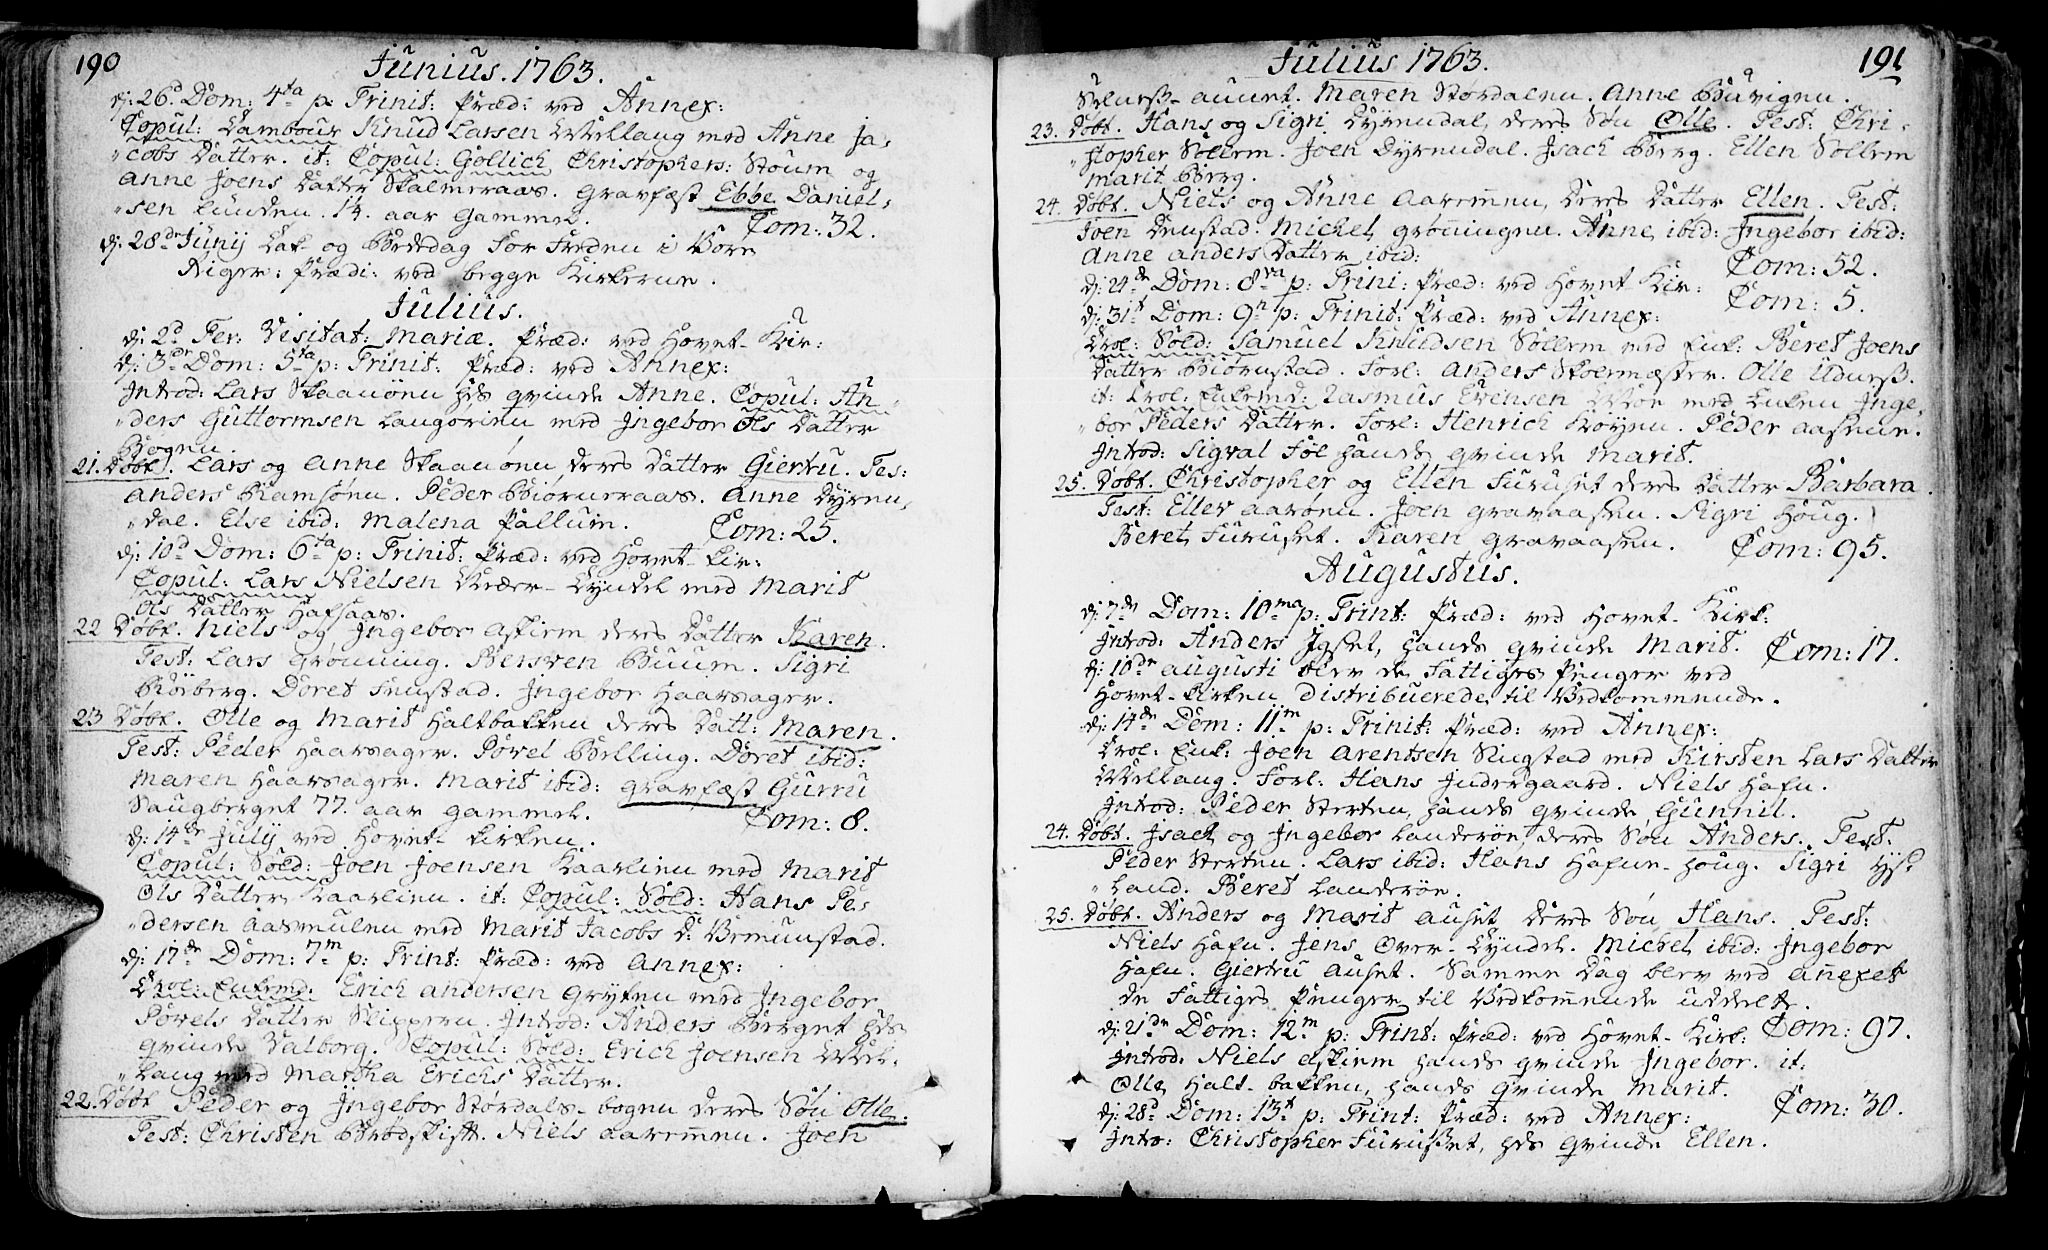 190
Junius. 1763.
dj: 26d Dom: 4ta p: Trinit: Præd: ved Annex:
Copul: Tambour Knud Larsen Wullaug med Anne Ja,
"cobs Datter. it: Copul: Gollich Christophers: Stoum og
Anne Joens Datter Skalmeraas. Gravfæst Ebbe Daniel,
"sen Lunden. 14. aar Gammel. Com: 32.
dj: 28de Junij Tak og Bededag for Freden i Vore
Riger: Prædi: ved begge Kirkerne.
Julius.
dj: 2d Fer: Visitat: Mariæ. Præd: ved Hovet-Kir:
dj: 3de Dom: 5ta p: Trinit: Præd: ved Annex:
Introd: Lars Skaanøen hds qvinde Anne. Copul: An,
"ders Guttormsen Langørien med Ingebor Ols Datter
Bogen
21. Døbt. Lars og Anne Skaanøen deres Datter Giertru. Tes:
Anders Ramsøen. Peder Biørneraas. Anne Dyren,
"dal. Else ibid: Malena Fallum. Com: 25.
dj: 10d Dom: 6ta p: Trinit: Præd: ved Hovet-Kir:
Copul: Lars Nielsen Neder-Lyndel med Marit
Ols Datter Hafsaas.
22 Døbt. Niels og Ingebor Askiem deres Datter Karen.
Test: Lars Grønning. Berswen Buum. Sigri
Røiberg. Doret Fenstad. Ingebor Haarsager.
23 Døbt. Olle og Marit Haltbakken deres Datt: Maren.
Test: Peder Haarsager. Povel Belling. Doret ibid:
Maren Haarsager. Marit ibid: Gravfæst Gurru
Saugberget 77. aar gammel. Com: 8.
dj: 14de July ved Hovet-Kirken.
Copul: Sold: Joen Joensen Kaarlien med Marit
Ols Datter Kaarlien. it: Copul: Sold: Hans Pe,
"dersen Aasmulen med Marit Jacobs D: Vemunstad.
dj: 17de Dom: 7m p: Trint: Præd: ved Annex:
Trol: Enkemd: Erich Andersen Gryten med Ingebor
Povels Datter Skipperu. Introd: Anders Berget hds
qvinde Valborg. Copul: Sold: Erich Joensen Wul,
"laug med Martha Erichs Datter.
22. Døbt Peder og Ingebor Størdals-bogen deres Søn Olle.
Test: Christen Brødskift. Niels Aaremen. Joen
191
Julius 1763.
Selness-aunet. Maren Størdalen. Anne Buvigen.
23. Døbt. Hans og Sigri Dyrendal, deres Søn Olle. Test: Chri,
"stopher Sollem. Joen Dyrendal. Isach Berg. Ellen Sollem
Marit Berg.
24. Døbt. Niels og Anne Aaremen, deres Datter Ellen. Test:
Joen Denstad. Michel Grønningen. Anne ibid: Ingebor ibid:
Anne Anders Datter ibid: Com: 52.
dj: 24de Dom: 8va p: Trini: Præd: ved Hovet Kir: Com: 5.
dj: 31t Dom: 9n p: Trinit: Præd: ved Annex:
Trol: Sold: Samuel Knudsen Sollem med Enk: Beret Joens
Datter Biørnstad. Forl: Anders Skolemæster. Olle Uduess.
it: Trol: Enkemd: Rasmus Evensen Moe med Enken Inge,
"bor Peders Datter. Forl: Henrich Røyen. Peder Aasene.
Introd: Sigval Foe hands qvinde Marit.
25. Døbt. Christopher og Ellen Furuset deres Datter Barbara.
Test: Eller Aarøen. Joen Gravaasen. Sigri Houg.
Beret Furuset. Karen Gravaasen. Com: 95.
Augustus.
dj: 7de Dom: 10ma p: Trint: Præd: ved Hovet-Kirk:
Introd: Anders Igset, hands qvinde Marit. Com: 17.
dj: 10de Augusti blev de Fattiges Penger ved
Hovet-Kirken distribuerede til Vedkommende.
dj: 14de Dom: 11m p: Trinit: Præd: ved Annex:
Trol: Enk: Joen Arentsen Ringstad med Kirsten Lars Datter
Wullaug. Forl: Hans Indergaard. Niels Hafn.
Introd: Peder Sterten, hands qvinde Gunnil.
24. Døbt. Isach og Ingebor Landerøe, deres Søn Anders. Test:
Peder Sterten. Lars ibid: Hans Hafne-houg. Sigri Hs,
"land. Beret Landerøe.
25. Døbt. Anders og Marit Auset deres Søn Hans. Test:
Niels Hafn. Jens Over-Lyndel. Michel ibid: Ingebor
Hafn. Giertru Auset. Samme Dag blev ved Anexet
de Fattiges Penger til Vedkommende uddeelt.
dj: 21de Dom: 12m p: Trint: Præd: ved Hovet-Kirk: Com: 97.
Introd: Niels Askiem hands qvinde Ingebor. it:
Olle Halt-bakken, hands qvinde Marit.
dj: 28d Dom: 13t p: Trint: Præd: ved Annex: Com: 30.
Intro: Christopher Furusset, hds qvinde Ellen.